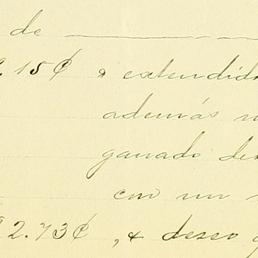 de
15¢ & extendida
además
ganado des
con un
2.73¢, & deseo